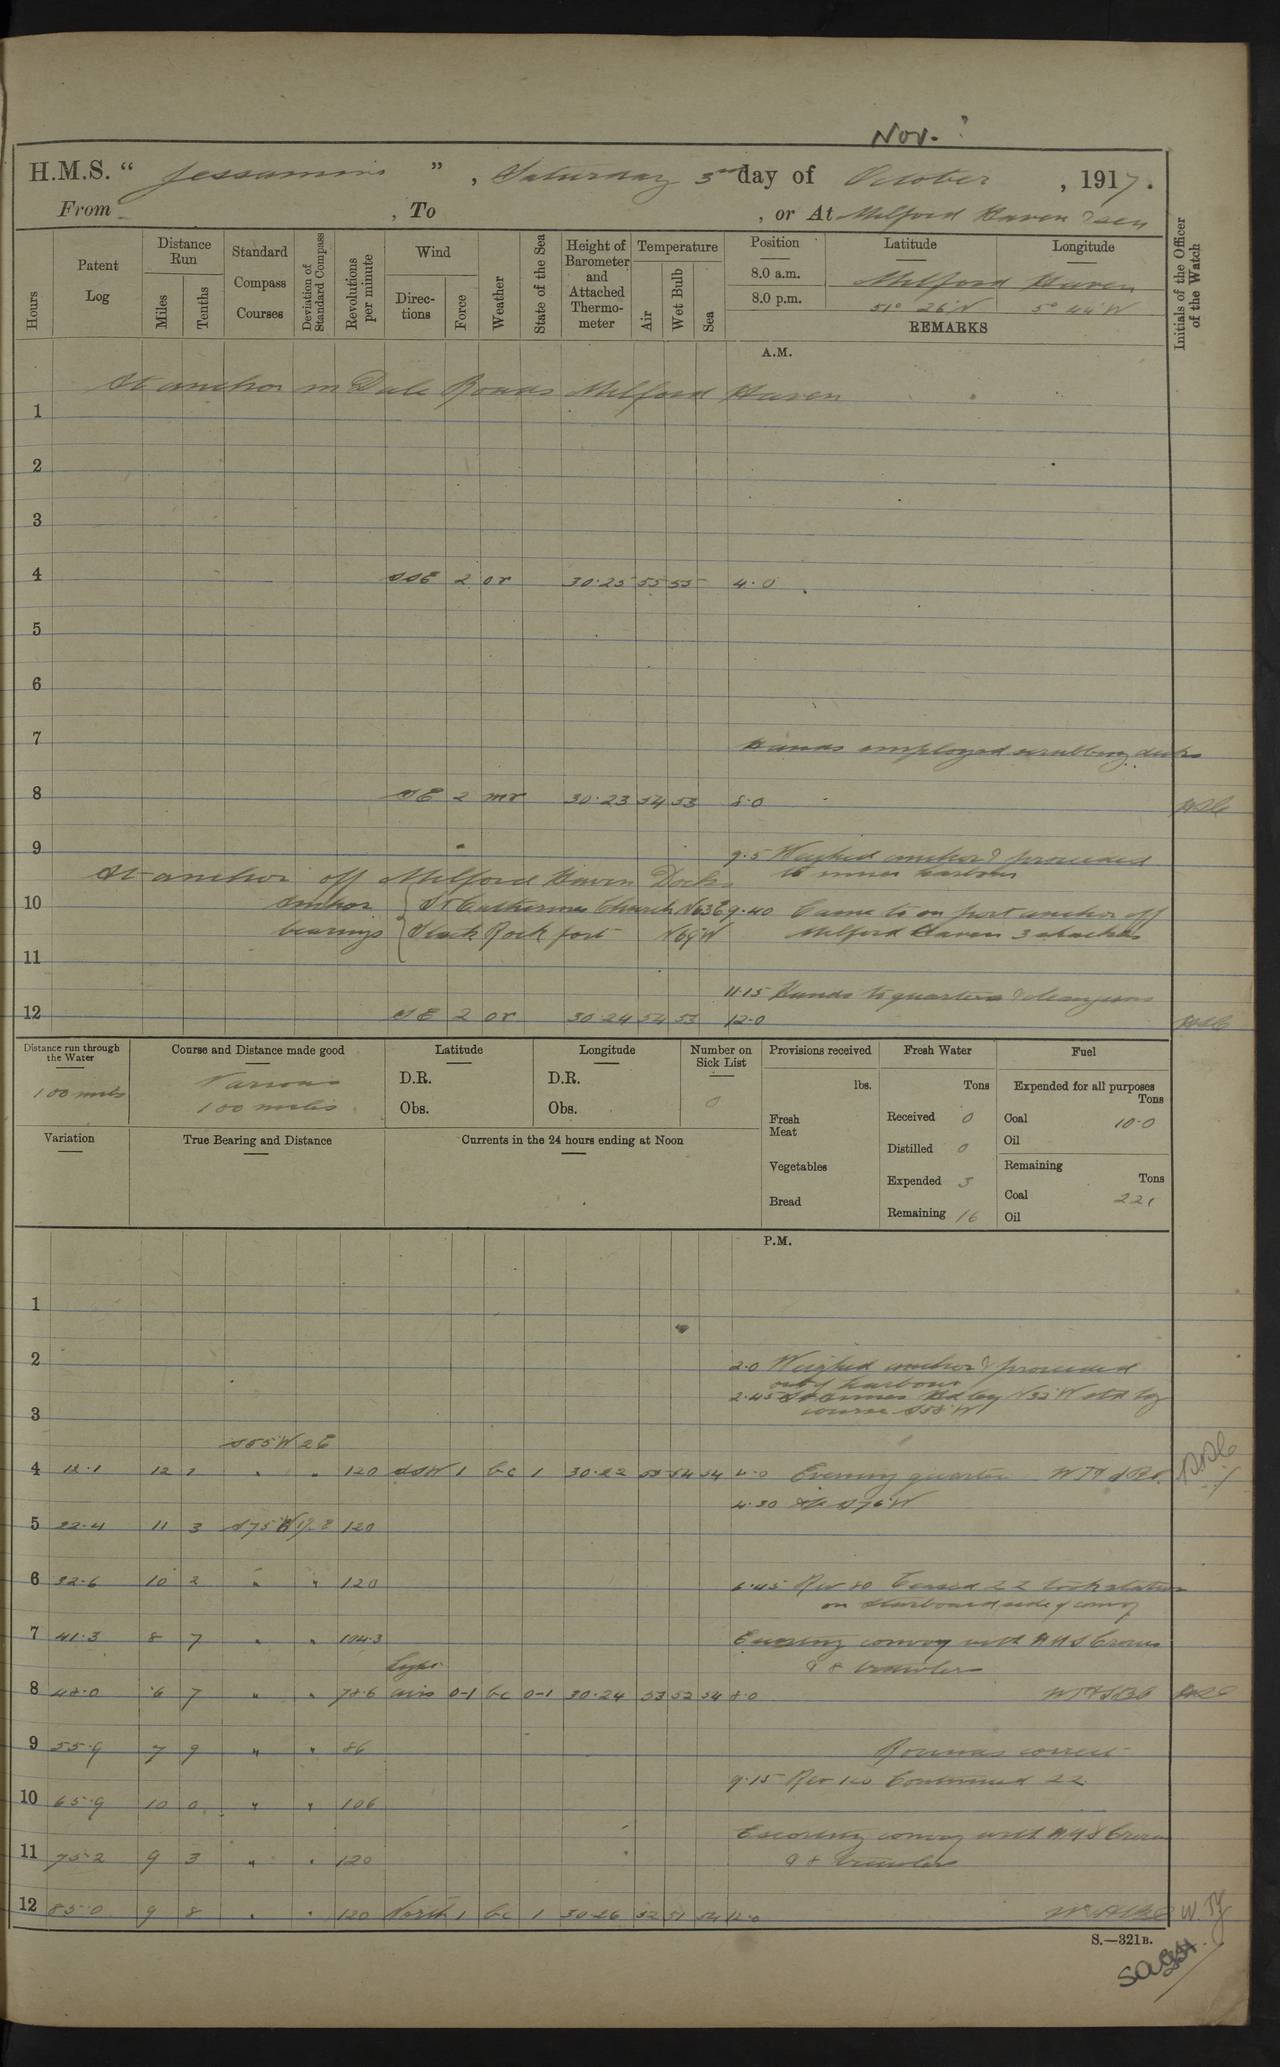 Nov. ?
H.M.S. " Jessamine ", Saturday 3rd day of October, 1917.
From , To , or At Milford Haven & sea
Hours
Patent Log
Distance Run
Miles
Tenths
Standard Compass Courses
Deviation of Standard Compass
Revolutions per minute
Wind
Directions
Force
Weather
State of the Sea
Height of Barometer and Attached Thermometer
Temperature
Air
Wet Bulb
Sea
Position
Latitude
Longitude
8.0 a.m. Milford Haven
8.0 p.m. 51° 26'N 5° 44'W
REMARKS
Initials of the Officer of the Watch
A.M.
At anchor in Dale Roads Milford Haven
1
2
3
4 SSE 2 or 30.25 55 55 4.0
5
6
7 Hands employed scrubbing decks
8 SE 2 mr 30.23 54 53 8.0
9 9.5 Weighed anchor & proceeded
At anchor off Milford Haven Docks to inner harbour
10 Anchor St Catherines Church N63E 9.40 Came to on port anchor off
bearings Stack Rock fort N69W Milford Haven 3 shackles
11
11.15 Hands to quarters & clean guns
12 SE 2 or 30.24 54 53 12.0
Distance run through the Water
100 miles
Course and Distance made good
Various
100 miles
Latitude
D.R.
Obs.
Longitude
D.R.
Obs.
Number on Sick List
0
Provisions received
lbs.
Fresh Meat
Vegetables
Bread
Fresh Water
Tons
Received 0
Distilled 0
Expended 3
Remaining 16
Fuel
Expended for all purposes
Tons
Coal 10.0
Oil
Remaining
Tons
Coal 221
Oil
Variation
True Bearing and Distance
Currents in the 24 hours ending at Noon
P.M.
1
2 2.0 Weighed anchor & proceeded
out of harbour
2.45 St Annes Hd brg N32W
3 course S55W
S55W 2E
4 12.1 12 1 " " 120 SSW 1 bc 1 30.22 53 54 54 4.0 Evening quarters
4.30 A/c S76W
5 22.4 11 3 S75W 120
6 32.6 10 2 " " 120
6.45 Rev 80 Ceased ZZ took station
on starboard side of convoy
7 41.3 8 7 " " 104.3 Escorting convoy with HMS Crocus
Light & 8 trawlers
8 48.0 6 7 " " 78.6 airs 0-1 bc 0-1 30.24 53 52 54 8.0
9 55.9 7 9 " " 86 Rounds correct
9.15 Rev 120 Continued ZZ
10 65.9 10 0 " " 106
Escorting convoy with HMS Crocus
11 75.2 9 3 " " 120 & 8 trawlers
12 85.0 9 8 " " 120 North 1 bc 1 30.26 52 51 54 12.0
S.—321B.